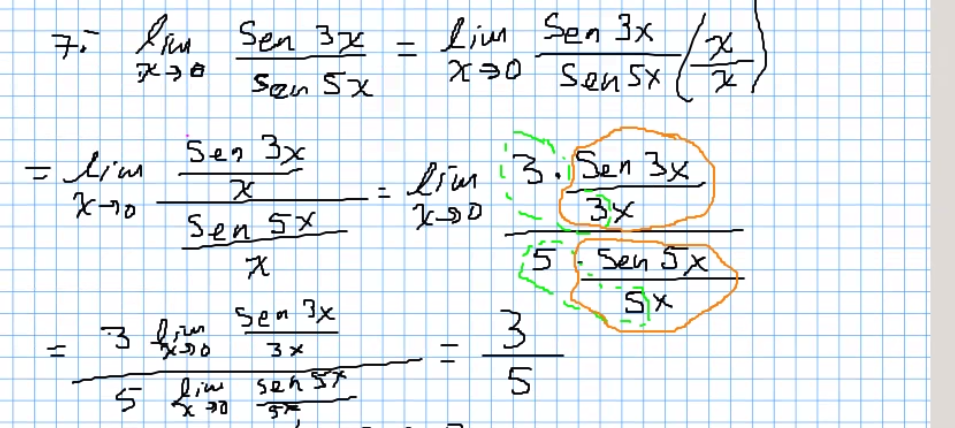 7.- lim x→0 Sen 3x / Sen 5x = lim x→0 Sen 3x / Sen 5x (x/x)
= lim x→0 (Sen 3x / x) / (Sen 5x / x) = lim x→0 (3 · Sen 3x / 3x) / (5 · Sen 5x / 5x)
= (3 lim x→0 Sen 3x / 3x) / (5 lim x→0 sen 5x / 5x) = 3/5